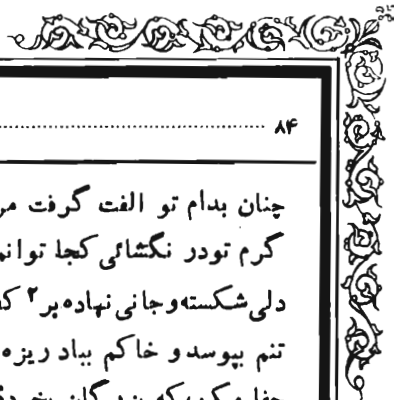 ۸۴
چنان بدام تو الفت گرفت
گرم تودر نگشائی کجا
دلی شکسته و جانی نهاده بر۲
تنم بپوسد و خاکم بباد ریزه